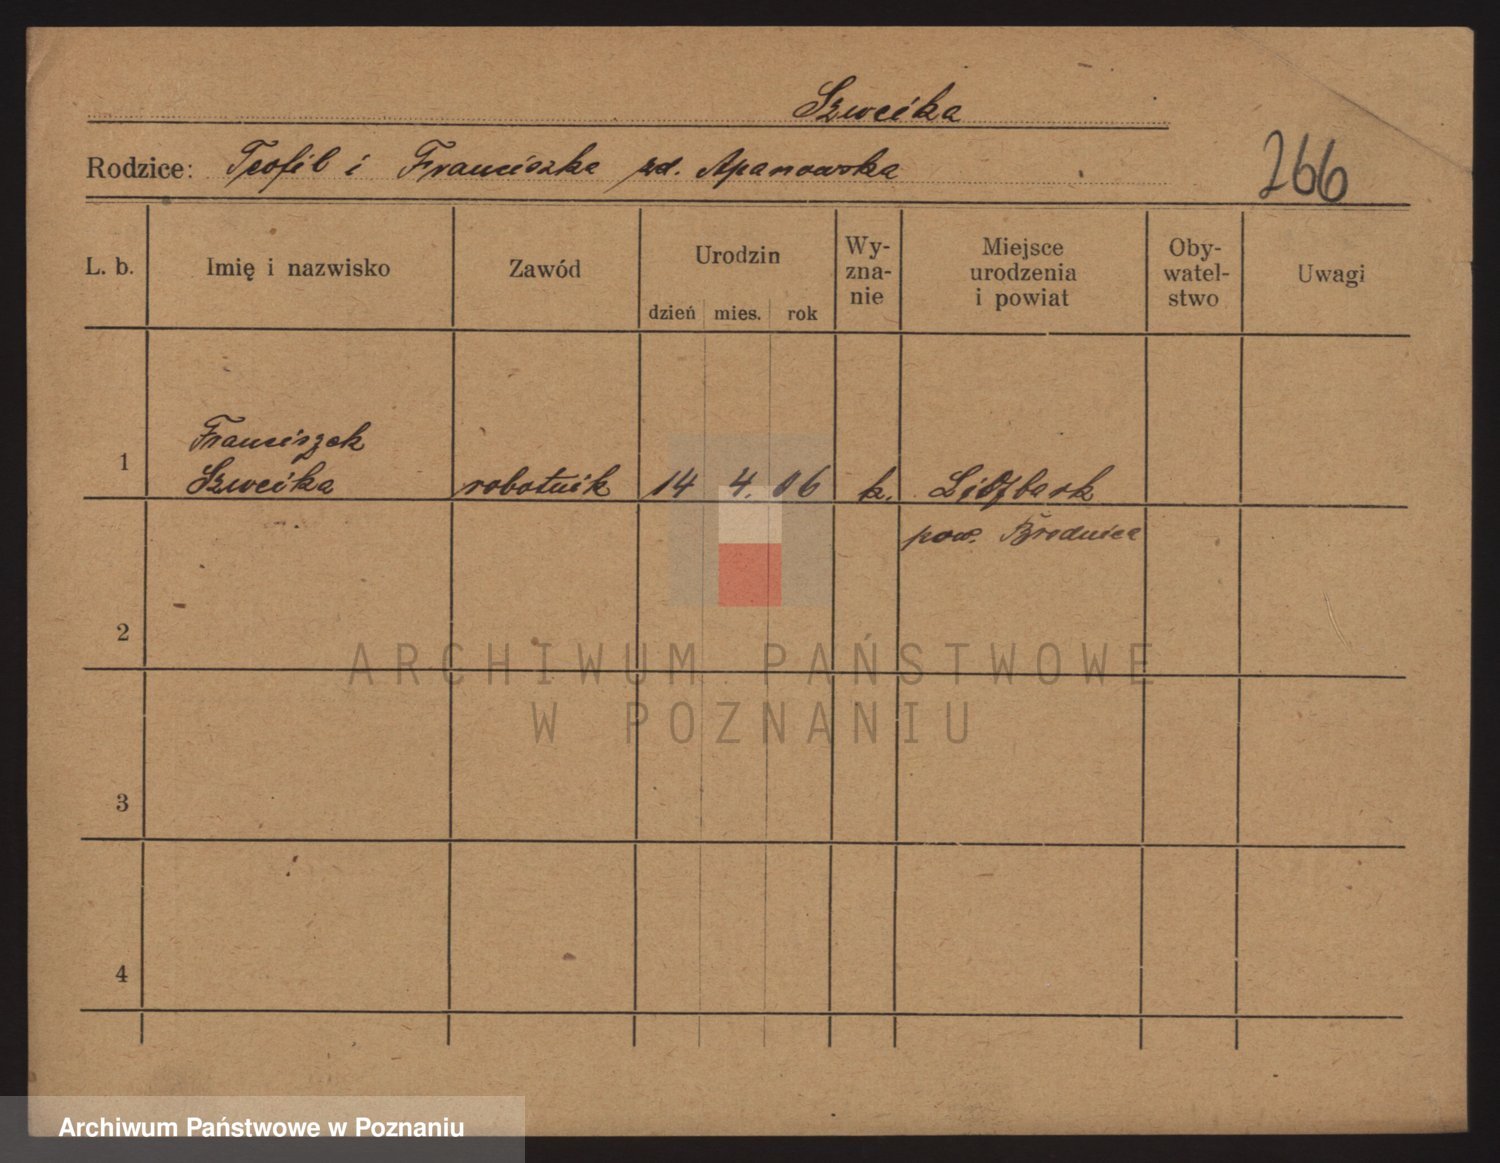 Szweika
Rodzice: Teofil i Franciszka zd. Apanowska
266
L. b.
Imię i nazwisko
Zawód
Urodzin
dzień mies. rok
Wy-
zna-
nie
Miejsce
urodzenia
i powiat
Oby-
watel-
stwo
Uwagi
1
Franciszek
Szweika
robotnik
14 4. 06
k.
Lidzbark
pow. Brodnica
2
3
4
ARCHIWUM PAŃSTWOWE
W POZNANIU
Archiwum Państwowe w Poznaniu